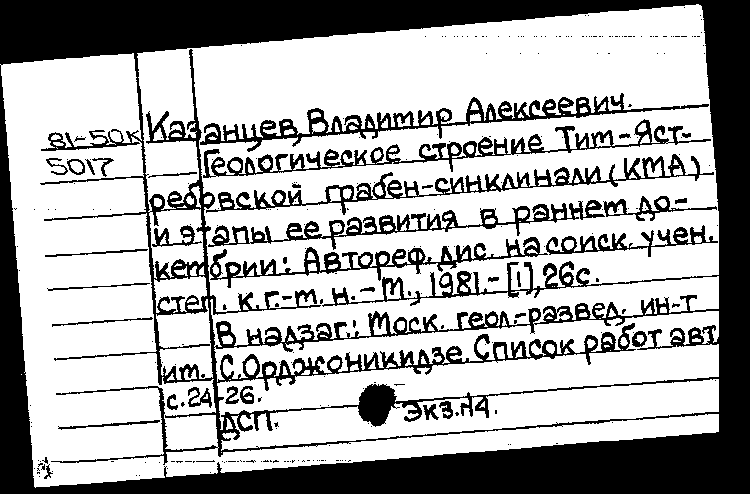 81-50к Казанцев, Владимир Алексеевич.
5017 Геологическое строение Тим-Яст-
ребовской грабен-синклинали (КМА)
и этапы ее развития в раннем до-
кембрии: Автореф. дис. на соиск. учен.
степ. к.г.-м. н. - М., 1981. - [1], 26с.
В надзаг.: Моск. геол.-развед. ин-т
им. С. Орджоникидзе. Список работ авт.
с. 24-26.
ДСП. Экз. №4.